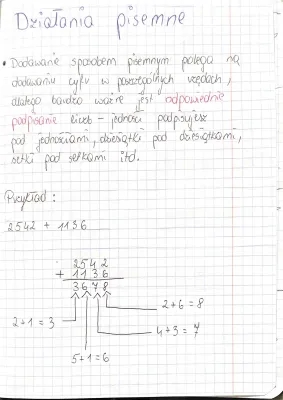 Działania pisemne
• Dodawanie sposobem pisemnym polega na
dodawaniu cyfr w poszczególnych rzędach,
dlatego bardzo ważne jest odpowiednie
podpisanie liczb - jedności podpisujesz
pod jednościami, dziesiątki pod dziesiątkami,
setki pod setkami itd.
Przykład :
2542 + 1136
2542
+ 1136
3678
2+6=8
2+1=3
4+3=7
5+1=6